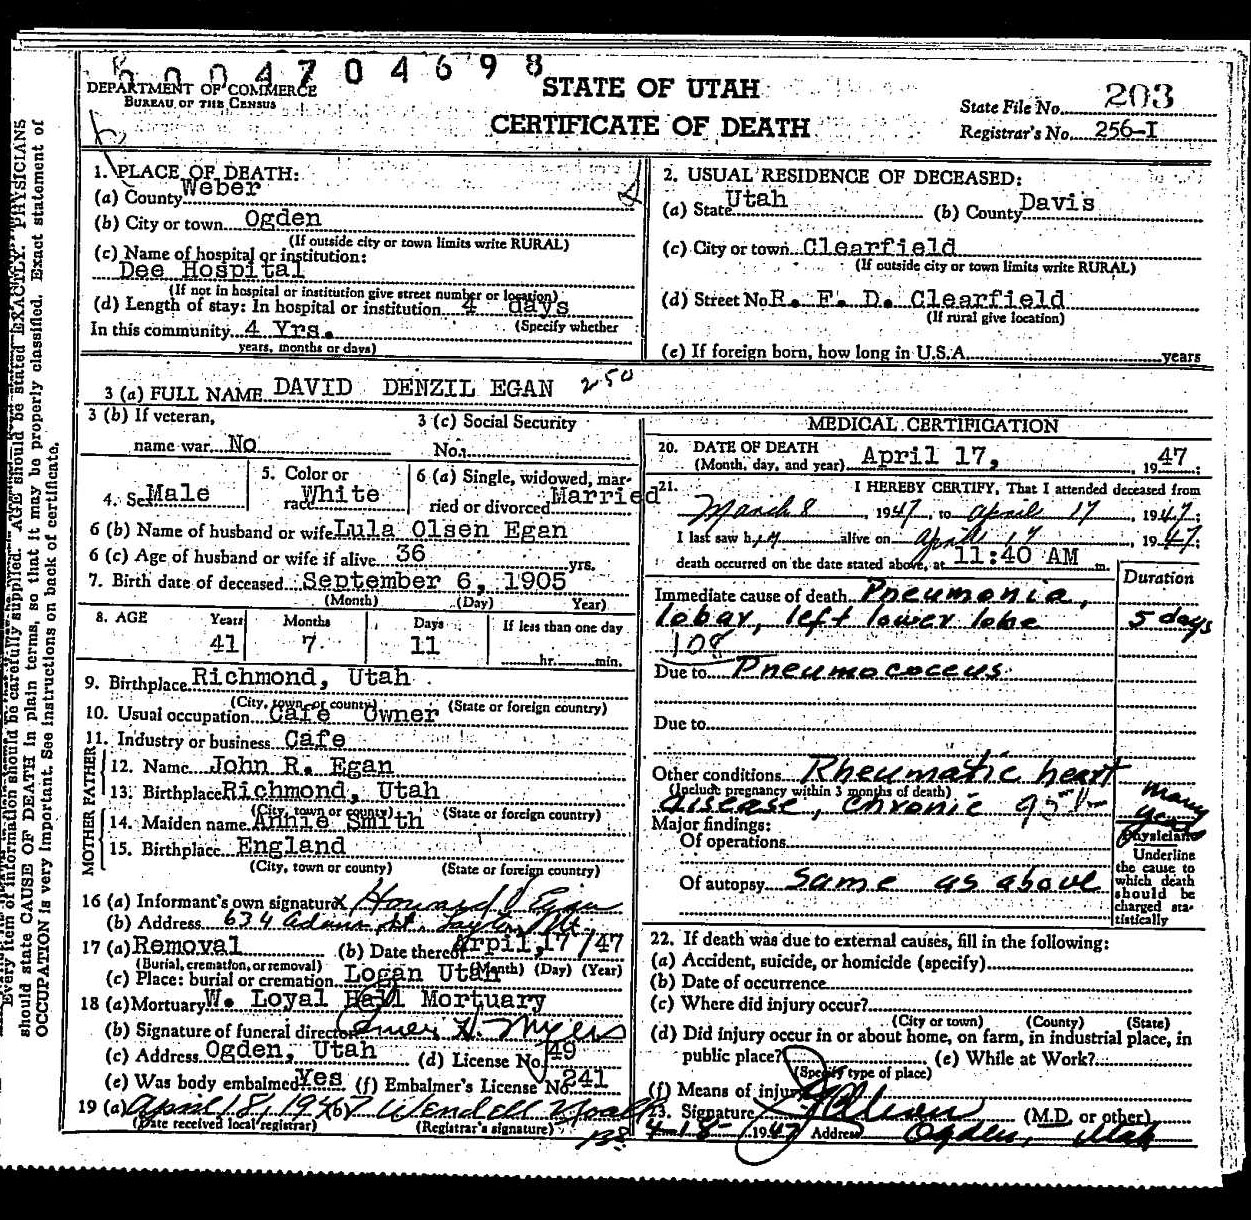 0004704698
DEPARTMENT OF COMMERCE
BUREAU OF THE CENSUS
STATE OF UTAH
CERTIFICATE OF DEATH
State File No. 203
Registrar's No. 256-I
1. PLACE OF DEATH:
(a) County Weber
(b) City or town Ogden
(If outside city or town limits write RURAL)
(c) Name of hospital or institution:
Dee Hospital
(If not in hospital or institution give street number or location)
(d) Length of stay: In hospital or institution 4 days
In this community 4 Yrs. (Specify whether
years, months or days)
2. USUAL RESIDENCE OF DECEASED:
(a) State Utah (b) County Davis
(c) City or town Clearfield
(If outside city or town limits write RURAL)
(d) Street No. R. F. D. Clearfield
(If rural give location)
(e) If foreign born, how long in U.S.A. years
3 (a) FULL NAME DAVID DENZIL EGAN 250
3 (b) If veteran,
name war No
3 (c) Social Security
No.
4. Sex Male
5. Color or
race White
6 (a) Single, widowed, mar-
ried or divorced Married
6 (b) Name of husband or wife Lula Olsen Egan
6 (c) Age of husband or wife if alive 36 yrs.
7. Birth date of deceased September 6, 1905
(Month) (Day) Year)
8. AGE Years Months Days If less than one day
41 7 11 hr. min.
9. Birthplace Richmond, Utah
(City, town or county) (State or foreign country)
10. Usual occupation Cafe Owner
11. Industry or business Cafe
FATHER
12. Name John R. Egan
13. Birthplace Richmond, Utah
(City, town or county) (State or foreign country)
MOTHER
14. Maiden name Annie Smith
15. Birthplace England
(City, town or county) (State or foreign country)
16 (a) Informant's own signature x Howard Egan
(b) Address 634 Layton
17 (a) Removal (b) Date thereof Arpil, 17/47
(Burial, cremation, or removal) (Month) (Day) (Year)
(c) Place: burial or cremation Logan Utah
18 (a) Mortuary W. Loyal Hall Mortuary
(b) Signature of funeral director H. Myers
(c) Address Ogden, Utah (d) License No. 49
(e) Was body embalmed Yes (f) Embalmer's License No. 241
19 (a) April 18, 1947 Wendell Noall
(Date received local registrar) (Registrar's signature)
138
MEDICAL CERTIFICATION
20. DATE OF DEATH
(Month, day, and year) April 17, 1947;
21. I HEREBY CERTIFY, That I attended deceased from
March 8, 1947, to April 17, 1947;
I last saw him alive on April 17, 1947;
death occurred on the date stated above, at 11:40 AM m.
Duration
Immediate cause of death Pneumonia,
lobar, left lower lobe 5 days
108
Due to Pneumococcus
Due to
Other conditions Rheumatic heart
(Include pregnancy within 3 months of death)
disease, chronic many years
Major findings:
Of operations
Of autopsy same as above
Physician
Underline
the cause to
which death
should be
charged sta-
tistically
22. If death was due to external causes, fill in the following:
(a) Accident, suicide, or homicide (specify)
(b) Date of occurrence
(c) Where did injury occur?
(City or town) (County) (State)
(d) Did injury occur in or about home, on farm, in industrial place, in
public place? (e) While at Work?
(Specify type of place)
(f) Means of injury
23. Signature (M.D. or other)
4-18- 1947 Address Ogden, Utah
Every item of information should be carefully supplied. AGE should be stated EXACTLY. PHYSICIANS
should state CAUSE OF DEATH in plain terms, so that it may be properly classified. Exact statement of
OCCUPATION is very important. See instructions on back of certificate.